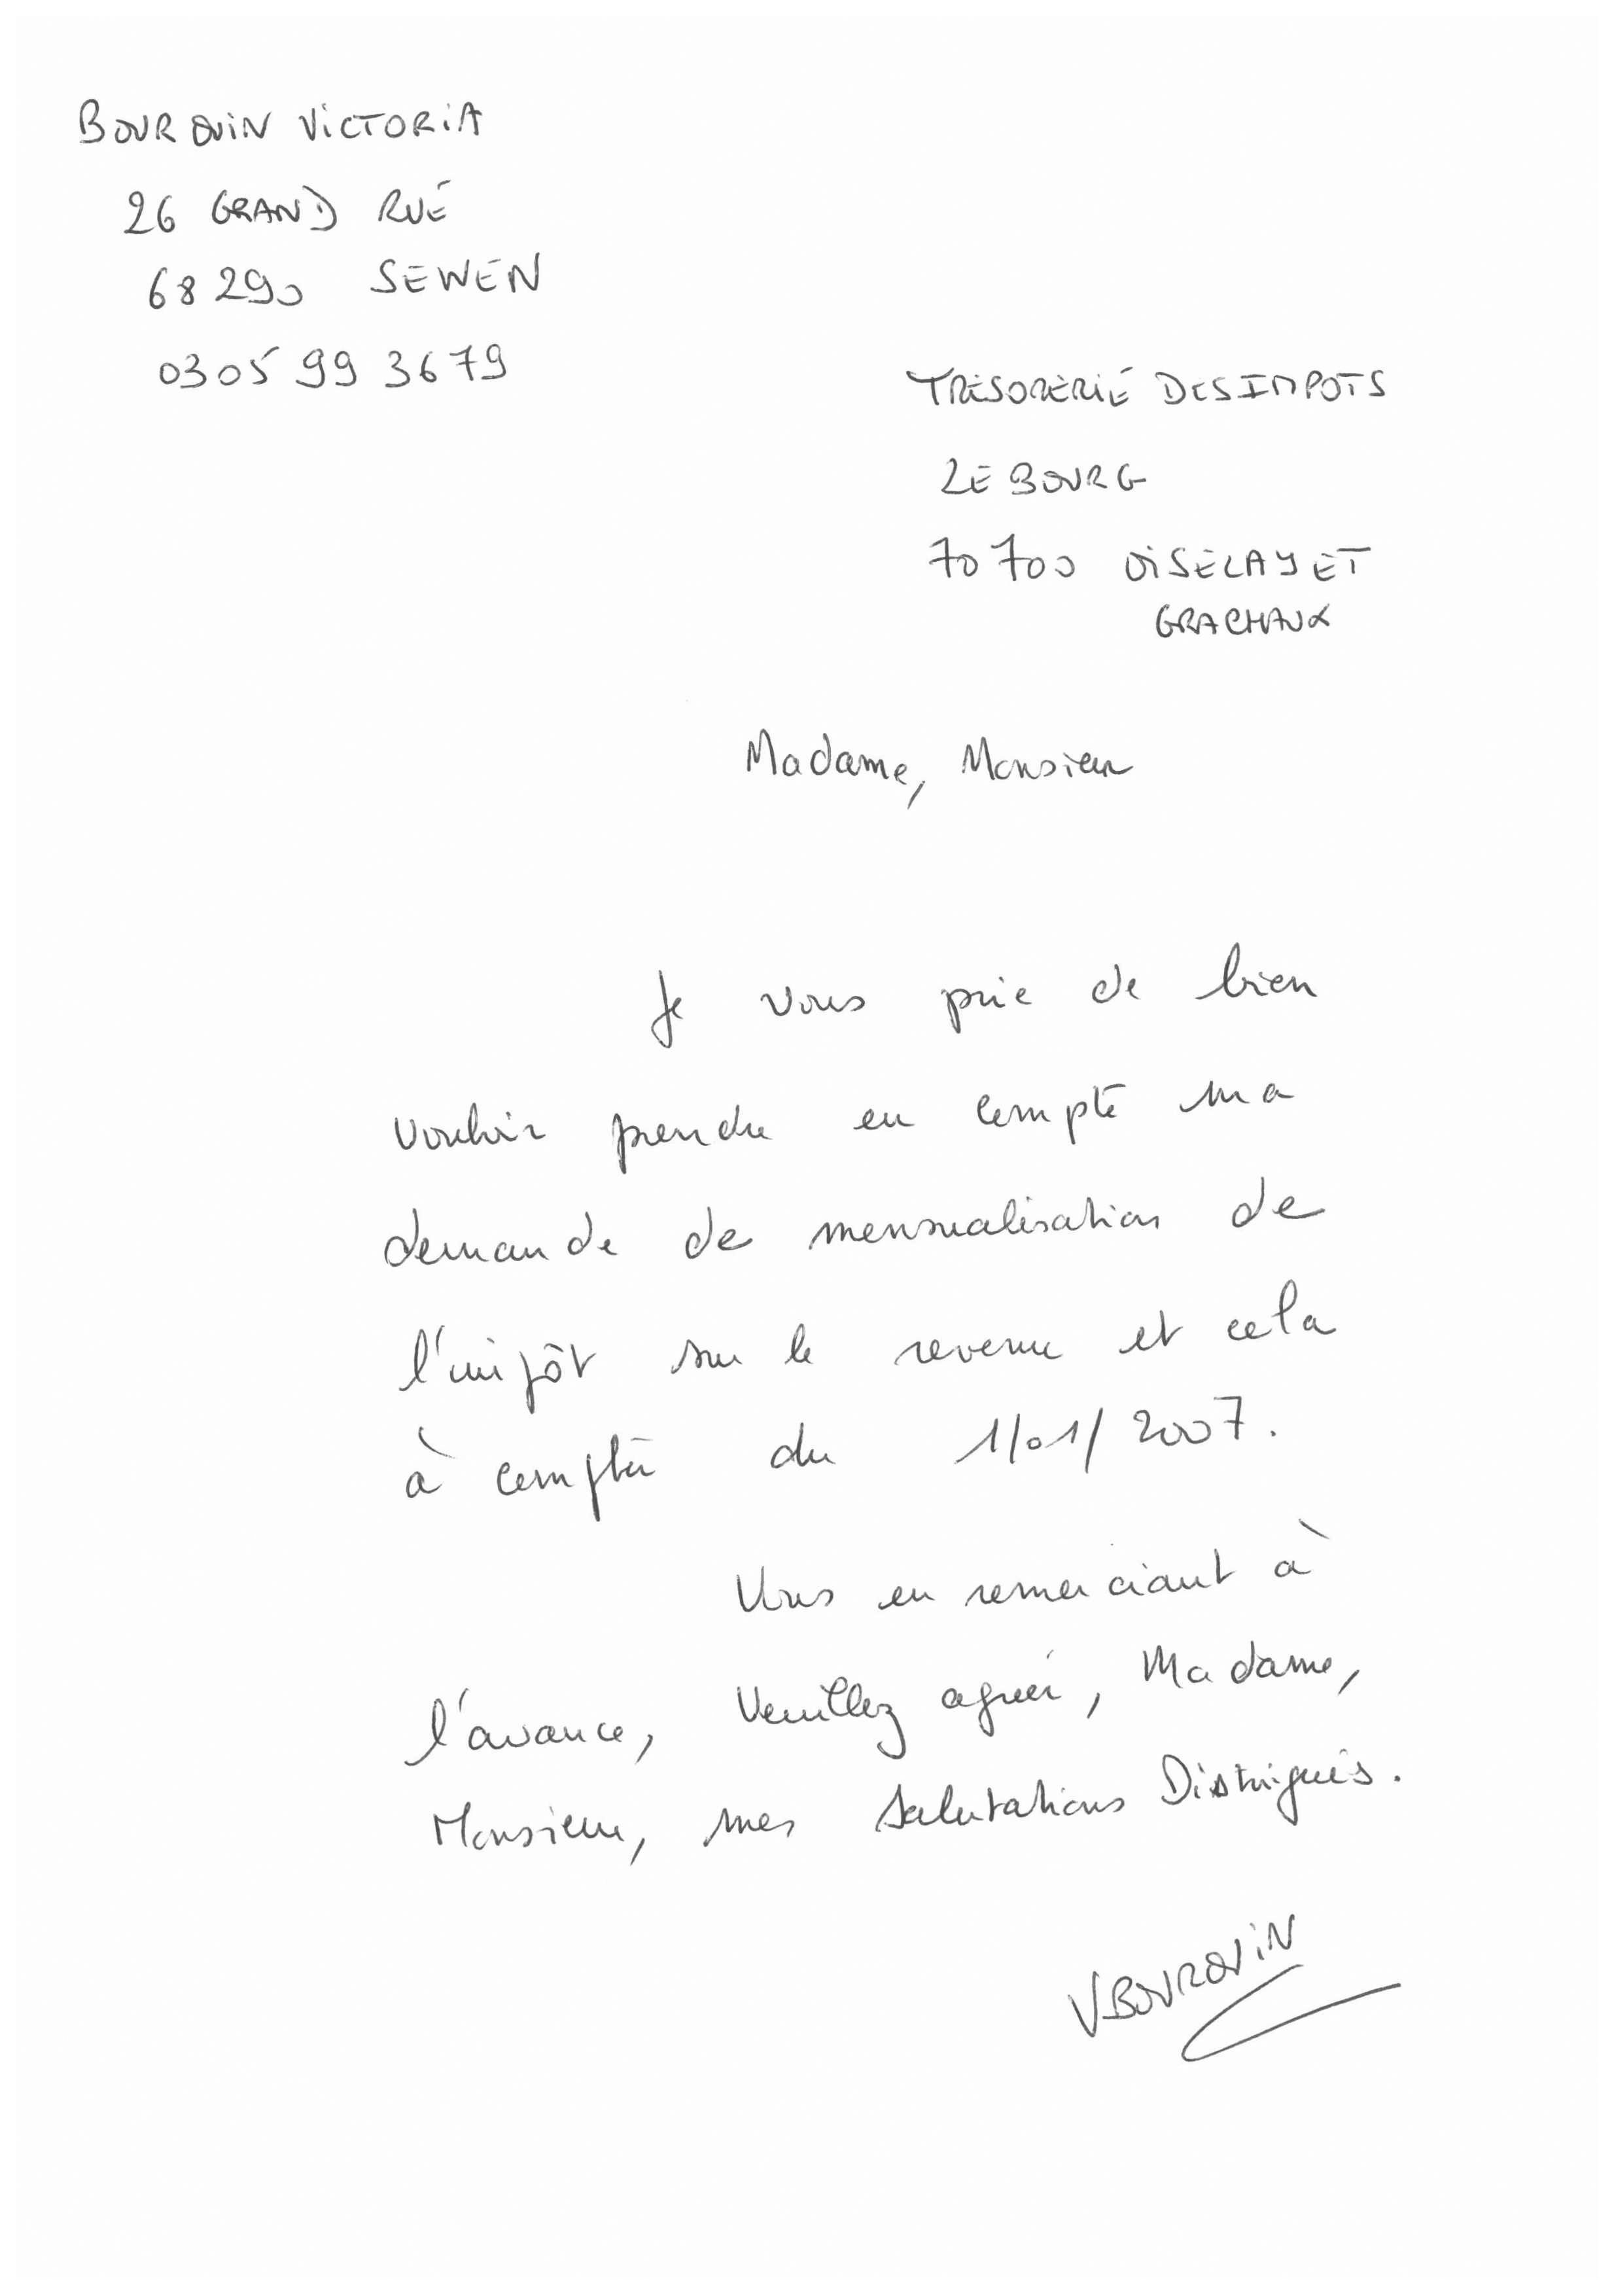 BOURQUIN VICTORIA
26 GRAND RUE
68290 SEWEN
0305993679
TRESORERIE DES IMPOTS
LE BOURG
70700 OISELAY ET
GRACHAUX
Madame, Monsieur
Je vous prie de bien
vouloir prendre en compte ma
demande de mensualisation de
l'impôt sur le revenu et cela
à compter du 1/01/2007.
Vous en remerciant à
l'avance, Veuillez agréer, Madame,
Monsieur, mes salutations Distingués.
V BOURQUIN